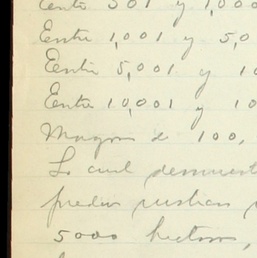 Entre 501 y 1,000
Entre 1,001 y 5,0
Entre 5,001 y 10
Entre 10,001 y 10
Mayores de 100,
Lo cual demuest
predios rusticos
5000 hectareas,